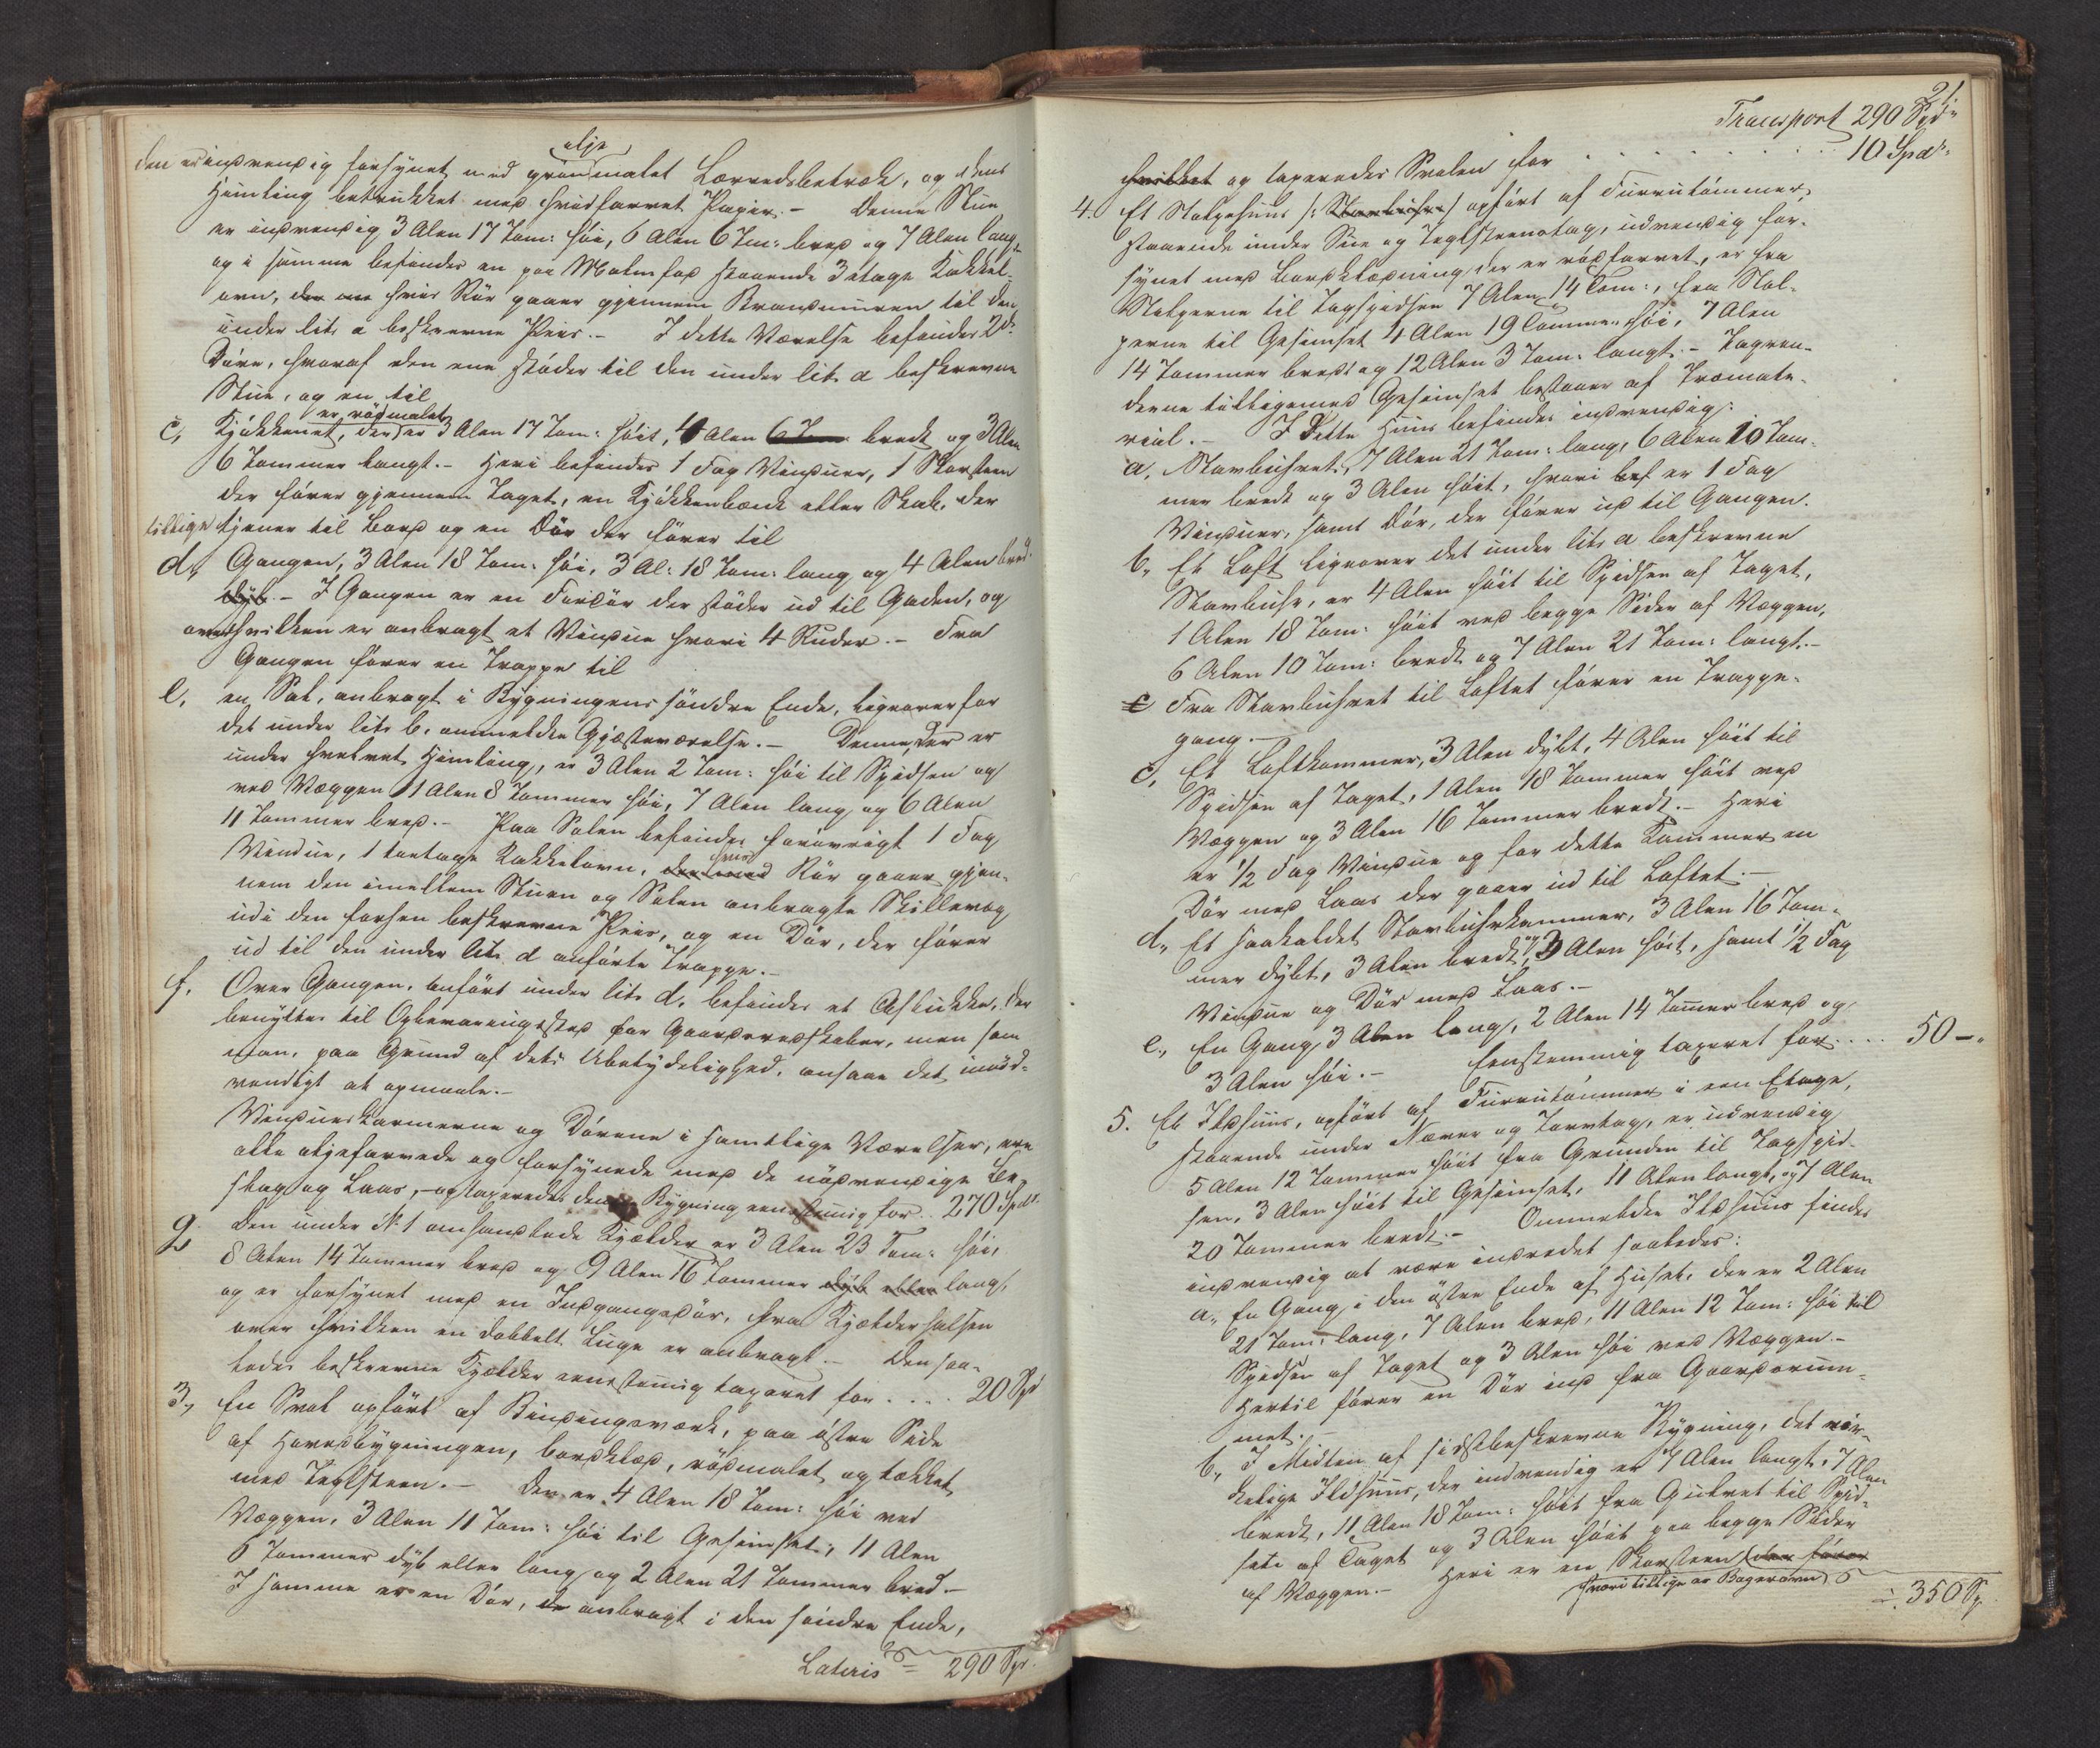 olje
den er indvendig forsynet med grönmalet Lærredsbetræk, og dens
Himling betrukket med hvidfarvet Papir. – Denne Stue
er indvendig 3 Alen 17 Tom: höi, 6 Alen 6 Tm: bred og 7 Alen lang,
og i samme befindes en paa Malmfod staaende 3 etage Kakkel-
ovn, hvis Rör gaaer gjennem Brandmuren til den
under litr a beskrevne Peis. – I dette Værelse befindes 2de
Döre, hvoraf den ene stöder til den under litr. a beskrevne
Stue, og en til
er rödmalet
c, Kjökkenet, der er 3 Alen 17 Tom: höit, 4 Alen 6 Tom: bredt og 3 Alen
6 Tommer langt. – Heri befindes 1 Fag Vinduer, 1 Skorsteen
der förer gjennem Taget, en Kjökkenbænk eller Skab, der
tillige tjener til Bord og en Dör der förer til
d, Gangen, 3 Alen 18 Tom: höi, 3 Al: 18 Tom: lang og 4 Alen bred
dyb. – I Gangen er en Fordör der stöder ud til Gaden, og
over hvilken er anbragt et Vindue hvori 4 Ruder. – Fra
Gangen förer en Trappe til
e, en Sal, anbragt i Bygningens söndre Ende, ligeoverfor
det under litr b. anmeldte Gjæsteværelse. – Denne, der er
under hvælvet Himling, er 3 Alen 2 Tom: höi til Spidsen og
ved Væggen 1 Alen 8 Tommer höi, 7 Alen lang og 6 Alen
11 Tommer bred. – Paa Salen befindes forövrigt 1 Fag
hvis
Vindue, 1 toetage Kakkelovn, der med Rör gaaer gjen-
nem den imellem Stuen og Salen anbragte Skillevæg
udi den forhen beskrevne Peis, og en Dör, der förer
ud til den under litr d anförte Trappe. –
f. Over Gangen, anfört under litr d. befindes et Aflukke, der
benyttes til Opbevaringssted for Gaardsredskaber, men som
man, paa Grund af dets Ubetydelighed, ansaae det unöd-
vendigt at opmaale. –
Vindueskarmerne og Dörene i samtlige Værelser, ere
alle oljefarvede og forsynede med de nödvendige Be-
slag og Laas, – og taxeredes denne Bygning eenstemig for .. 270 Spdlr.
g, Den under No 1 omhandlede Kjælder er 3 Alen 23 Tom: höi,
8 Alen 14 Tommer bred og 9 Alen 16 Tommer dyb eller lang,
og er forsynet med en Indgangsdör, fra Kjælderhalsen
over hvilken en dobbelt Luge er anbragt. – Den saa-
ledes beskrevne Kjælder eenstemig taxeret for .... 20 Spd
3, En Sval opfört af Bindingsværk, paa östre Side
af Hovedbygningen, bordklæd, rödmalet og tækket
med Teglsteen. – Den er 4 Alen 18 Tom: höi ved
Væggen, 3 Alen 11 Tom: höi til Gesimset, 11 Alen
6 Tommer dyb eller lang og 2 Alen 21 Tommer bred. –
I samme er en Dör, de anbragt i den söndre Ende,
Lateris = 290 Spd.
21.
Transport 290 Spd
hvilket og taxeredes Svalen for ......... 10 Spd
4. Et Stolpehuus /: Stavbuhr :/ opfört af Furrutömmer,
staaende under Sue og Teglsteenstag, udvendig for-
synet med Bordklædning der er rödfarvet, er fra
Stolperne til Tagspidsen 7 Alen 14 Tom:, fra Stol-
perne til Gesimset 4 Alen 19 Tommer höi, 7 Alen
14 Tommer bredt og 12 Alen 3 Tom: langt. – Tagren-
derne tilligemed Gesimset bestaaer af Træmate-
rial. – I Dette Huus befindes indvendig:
a, Stavbuhret, 7 Alen 21 Tom: lang, 6 Alen 10 Tom-
mer bredt og 3 Alen höit, hvori bef er 1 Fag
Vinduer, samt Dör, der förer ud til Gangen.
b, Et Loft ligeover det under litr a beskrevne
Stavbuhr, er 4 Alen höit til Spidsen af Taget,
1 Alen 18 Tom: höit ved begge Sider af Væggen,
6 Alen 10 Tom: bredt og 7 Alen 21 Tom: langt. –
c Fra Stavbuhret til Loftet förer en Trappe-
gang. –
c, Et Loftkammer, 3 Alen dybt, 4 Alen höit til
Spidsen af Taget, 1 Alen 18 Tommer höit ved
Væggen og 3 Alen 16 Tommer bredt. – Heri
er 1/2 Fag Vindue og for dette Kammer en
Dör med Laas der gaaer ud til Loftet. –
d, Et saakaldet Stavbuhrkammer, 3 Alen 16 Tom-
mer dybt, 3 Alen bredt, og 3 Alen höit, samt 1/2 Fag
Vindue og Dör med Laas. –
e, En Gang 3 Alen lang, 2 Alen 14 Tomer bred og
3 Alen höi. – Eenstemmig taxeret for .... 50 –
5. Et Ildhuus, opfört af Furrutömmer i een Etage,
staaende under Næver og Torvtag, er udvendig
5 Alen 12 Tommer höit fra Grunden til Tagspid-
sen, 3 Alen höit til Gesimset, 11 Alen langt, og 7 Alen
20 Tommer bredt. – Ommeldte Ildhuus findes
indvendig at være indredet saaledes:
a, En Gang i den östre Ende af Huset, der er 2 Alen
21 Tom: lang, 7 Alen bred, 11 Alen 12 Tom: höi til
Spidsen af Taget og 3 Alen höi ved Væggen. –
Hertil förer en Dör ind fra Gaardsrum-
met. –
b, I Midten af sidstbeskrevne Bygning, det vir-
kelige Ildhuus, der indvendig er 7 Alen langt, 7 Alen
bredt, 11 Alen 18 Tom: höit fra Gulvet til Spid-
sen af Taget og 3 Alen höit paa begge Sider
af Væggen. – Heri er en Skorsteen (der förer
hvori tillige er Bagerovn)
÷ 350 Sp